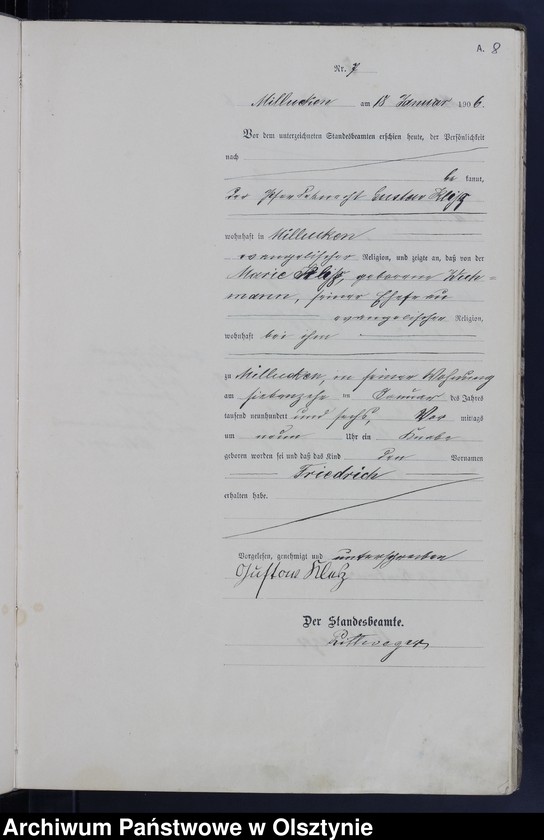 A. 8
Nr. 7
Millucken am 18 Januar 1906.
Vor dem unterzeichneten Standesbeamten erschien heute, der Persönlichkeit
nach
be kannt,
der Gustav
wohnhaft in Millucken
evangelischer Religion, und zeigte an, daß von der
Marie geborenen
mann, seiner Ehefrau
evangelischer Religion,
wohnhaft bei ihm
zu Millucken, in seiner Wohnung
am siebenzehn ten Januar des Jahres
tausend neunhundert und sechs, Vor mittags
um neun Uhr ein Knabe
geboren worden sei und daß das Kind den Vornamen
Friedrich
erhalten habe.
Vorgelesen, genehmigt und unterschrieben
Gustav
Der Standesbeamte.
Archiwum Państwowe w Olsztynie